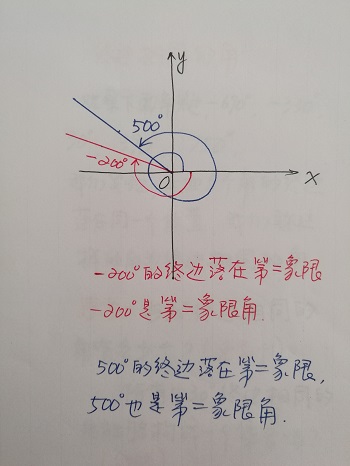 y
500°
-200°
O
x
-200°的终边落在第二象限
-200°是第二象限角.
500°的终边落在第二象限,
500°也是第二象限角.